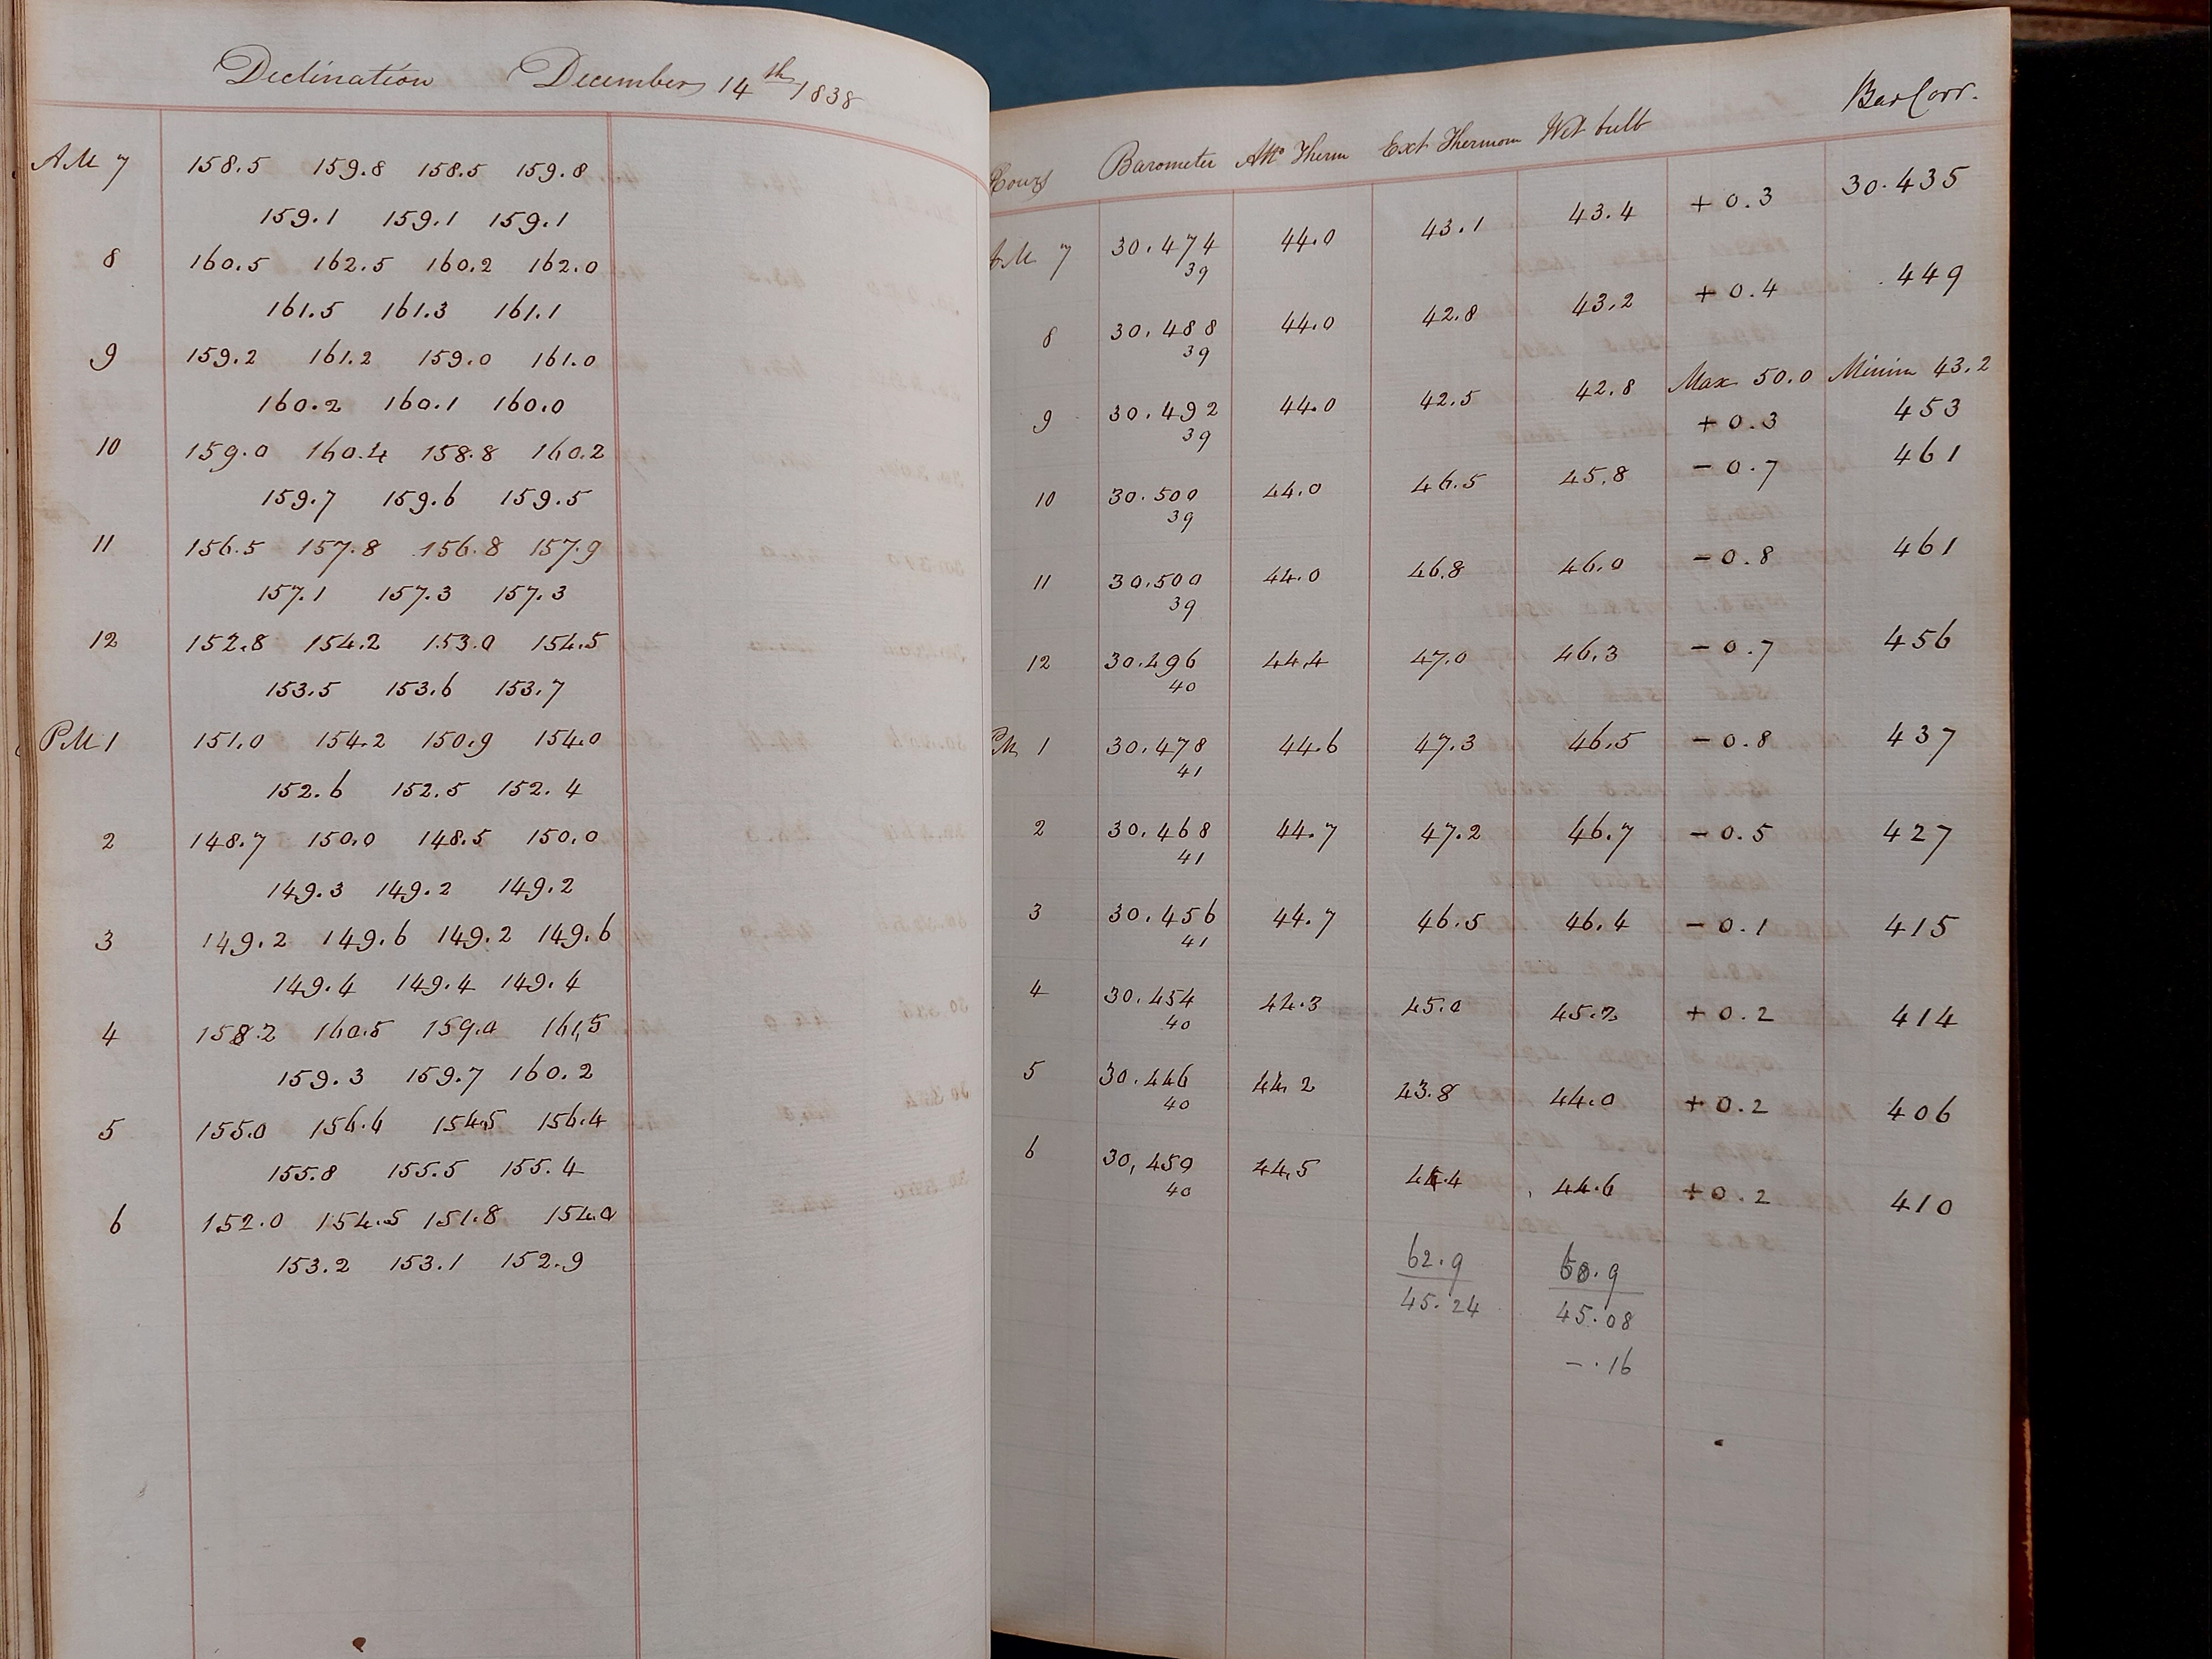 Declination December 14th 1838
AM 7 158.5 159.8 158.5 159.8
159.1 159.1 159.1
8 160.5 162.5 160.2 162.0
161.5 161.3 161.1
9 159.2 161.2 159.0 161.0
160.2 160.1 160.0
10 159.0 160.4 158.8 160.2
159.7 159.6 159.5
11 156.5 157.8 156.8 157.9
157.1 157.3 157.3
12 152.8 154.2 153.0 154.5
153.5 153.6 153.7
PM 1 151.0 154.2 150.9 154.0
152.6 152.5 152.4
2 148.7 150.0 148.5 150.0
149.3 149.2 149.2
3 149.2 149.6 149.2 149.6
149.4 149.4 149.4
4 158.2 160.5 159.0 161.5
159.3 159.7 160.2
5 155.0 156.4 154.5 156.4
155.8 155.5 155.4
6 152.0 154.5 151.8 154.0
153.2 153.1 152.9
Hours Barometer Atto Therm Ext Thermom Wet bulb Bar Corr.
AM 7 30.474 44.0 43.1 43.4 + 0.3 30.435
39
8 30.488 44.0 42.8 43.2 + 0.4 .449
39
Max 50.0 Minim 43.2
9 30.492 44.0 42.5 42.8 + 0.3 453
39
10 30.500 44.0 46.5 45.8 - 0.7 461
39
11 30.500 44.0 46.8 46.0 - 0.8 461
39
12 30.496 44.4 47.0 46.3 - 0.7 456
40
PM 1 30.478 44.6 47.3 46.5 - 0.8 437
41
2 30.468 44.7 47.2 46.7 - 0.5 427
41
3 30.456 44.7 46.5 46.4 - 0.1 415
41
4 30.454 44.3 45.0 45.2 + 0.2 414
40
5 30.446 44.2 43.8 44.0 + 0.2 406
40
6 30,450 44,5 44.4 44.6 + 0.2 410
40
62.9 60.9
45.24 45.08
- .16